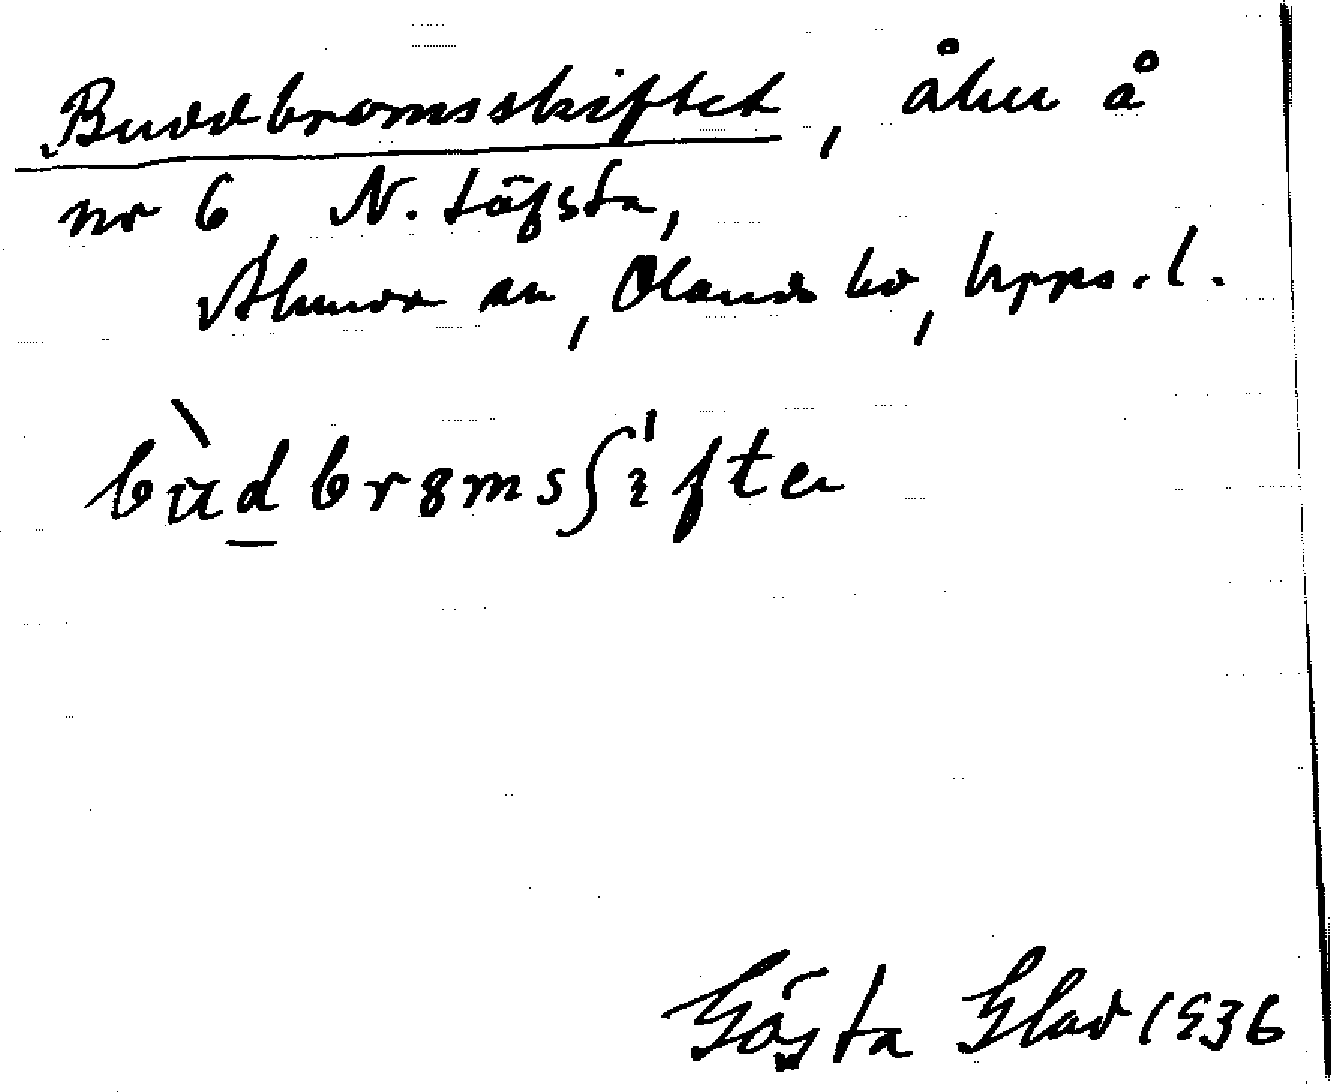 Buddbromsskiftet, åker å
nr 6 N. Löfsta,
Alunda sn, Olands hd, Upps. l.
bùdbrɞmsʃıften
Gösta Glad 1936